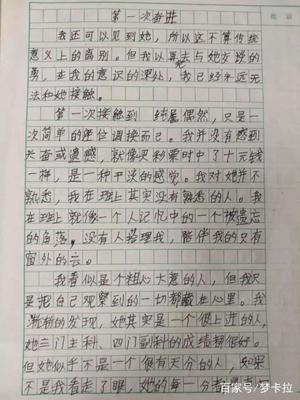 第一次奋进
我还可以见到她，所以这不算传统
意义上的离别。但我以再去与她交谈的
勇，在我的意识的深处，我已经永远无
法和她接触。
第一次接触到 纯属偶然，只是一
次简单的座位调换而已。我并没有感到
兴奋或遗憾，就像买彩票时中了十元钱
一样，是一种平淡的感觉。我对她并不
熟悉，我在班上其实没有熟悉的人。我
在班上就像一个人记忆中的一个被遗忘
的角落，没有人搭理我，陪伴我的只有
窗外的云。
我看似是个粗心大意的人，但我只
是把自己观察到的一切都藏在心里。我
渐渐的发现，她其实是一个很上进的人，
她三门主科、四门副科的成绩都很好。
但她似乎不是一个很有天分的人，如果
不是我看走了眼，她的每一分都是
百家号/梦卡拉